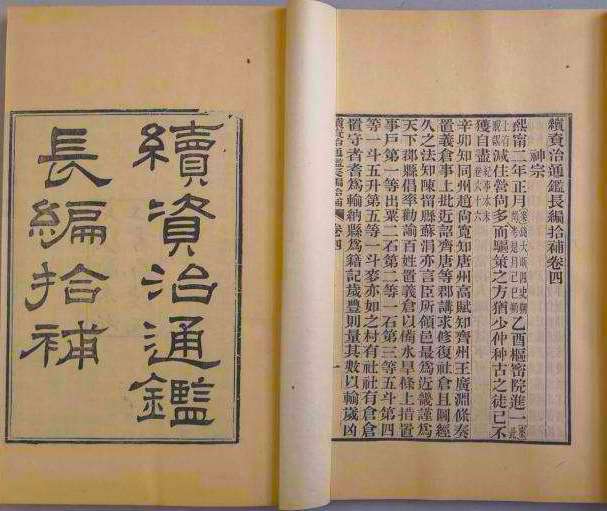 續資治通鑑
長編拾補
續資治通鑑長編拾補卷四
神宗
熙甯二年正月案錢大昕四史朔閏考是月己巳朔乙酉樞密院進一案此
減住營尙多而驅策之方猶少仲种古之徒已不
獲自盡紀事本末卷六十六
辛卯知同州趙尙寬知唐州高賦知齊州王廣淵條奏
置義倉事上批近詔齊唐等郡講求修復社倉且聞經
久之法知陳留縣蘇涓亦言臣所領邑最爲近畿謹爲
天下郡縣倡率勸諭百姓置義倉以備水旱條上措置
事戶第一等出粟二石第二等一石第三等五斗第四
等一斗五升第五等一斗麥亦如之村有社社有倉倉
置守者耆爲輸納縣爲籍記歲豐則量其數以輸歲凶
續資治通鑑長編拾補 卷四 一